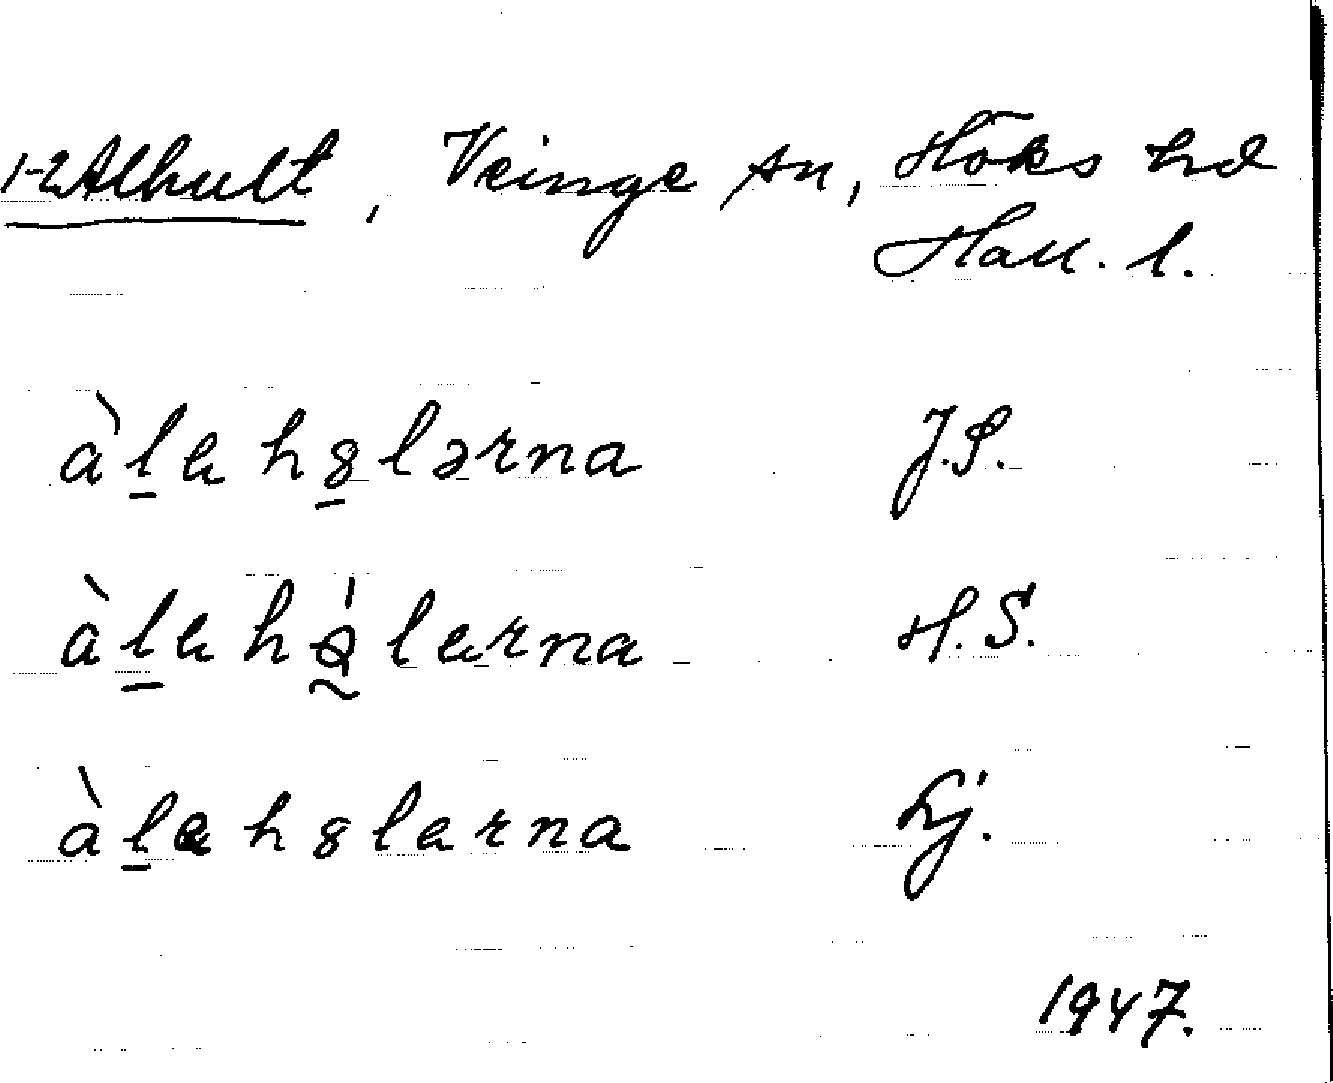 1-2 Alhult, Veinge sn, Höks hd
Hall. l.
àla hɞlərna J.P.
àla hɞ́larna H.S.
àla hɞlarna Lj.
1947.